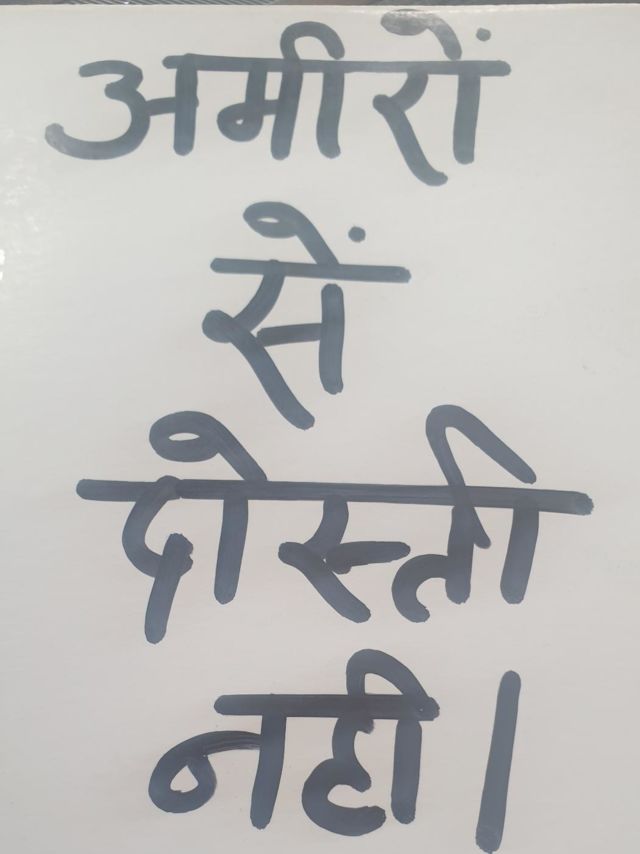 अमीरों
सें
दोस्ती
नही।